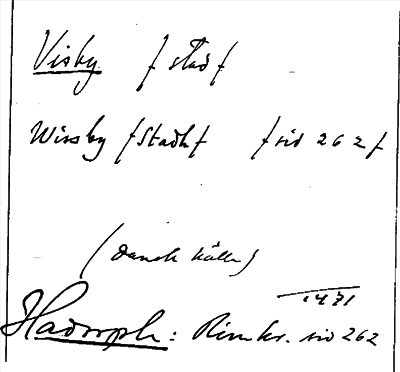 Visby / stad /
Wissby / Stadh / / sid 262 /
(Dansk källa)
1471
Hadorph: Rimkr. sid 262